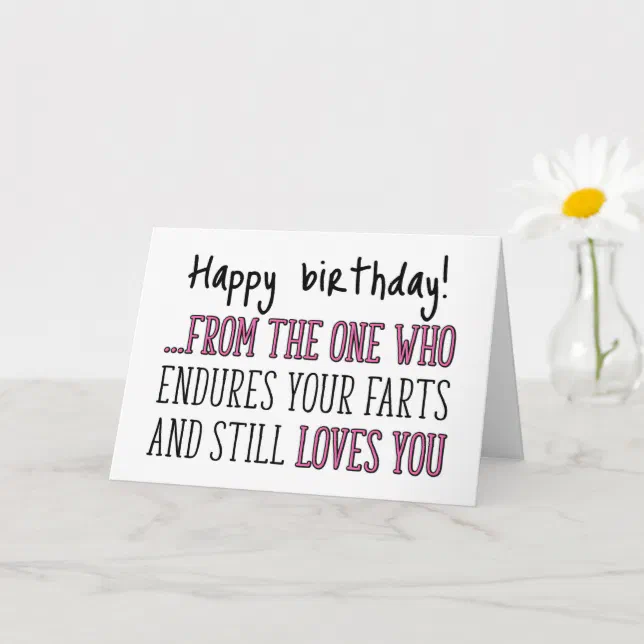 Happy birthday!
...FROM THE ONE WHO
ENDURES YOUR FARTS
AND STILL LOVES YOU